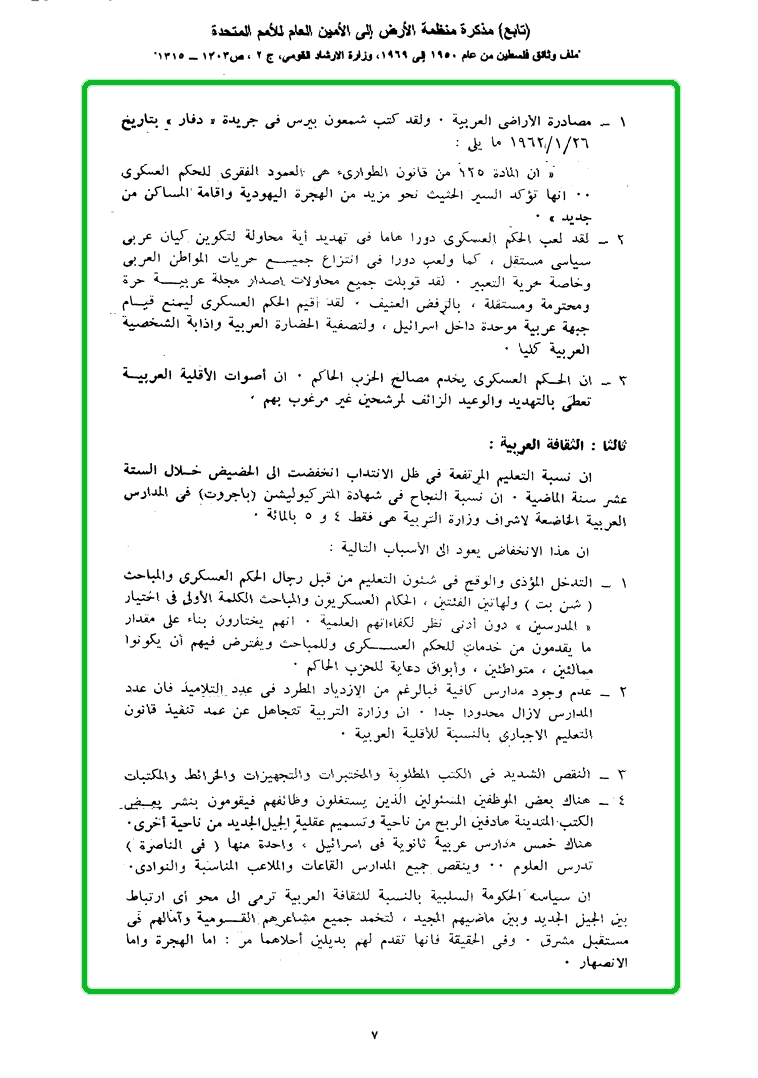 (تابع) مذكرة منظمة الأرض إلى الأمين العام للأمم المتحدة
"ملف وثائق فلسطين من عام ١٩٥٠ إلى ١٩٦٩، وزارة الارشاد القومى، ج ٢ ، ص١٣٠٣ – ١٣١٥"
١ – مصادرة الأراضى العربية . ولقد كتب شمعون بيرس فى جريدة « دفار » بتاريخ
١٩٦٢/١/٢٦ ما يلى :
« ان المادة ١٢٥ من قانون الطوارىء هى العمود الفقرى للحكم العسكرى
.. انها تؤكد السير الحثيث نحو مزيد من الهجرة اليهودية واقامة المساكن من
جديد » .
٢ – لقد لعب الحكم العسكرى دورا هاما فى تهديد أية محاولة لتكوين كيان عربى
سياسى مستقل ، كما ولعب دورا فى انتزاع جميع حريات المواطن العربى
وخاصة حرية التعبير . لقد قوبلت جميع محاولات اصدار مجلة عربية حرة
ومحترمة ومستقلة ، بالرفض العنيف . لقد أقيم الحكم العسكرى ليمنع قيام
جبهة عربية موحدة داخل اسرائيل ، ولتصفية الحضارة العربية واذابة الشخصية
العربية كليا .
٣ – ان الحكم العسكرى يخدم مصالح الحزب الحاكم . ان أصوات الأقلية العربية
تعطى بالتهديد والوعيد الزائف لمرشحين غير مرغوب بهم .
ثالثا : الثقافة العربية :
ان نسبة التعليم المرتفعة فى ظل الانتداب انخفضت الى الحضيض خلال الستة
عشر سنة الماضية . ان نسبة النجاح فى شهادة المتركيوليشن (باجروت) فى المدارس
العربية الخاضعة لاشراف وزارة التربية هى فقط ٤ و ٥ بالمائة .
ان هذا الانخفاض يعود الى الأسباب التالية :
١ – التدخل المؤذى والوقح فى شئون التعليم من قبل رجال الحكم العسكرى والمباحث
( شن بت ) ولهاتين الفئتين ، الحكام العسكريون والمباحث الكلمة الأولى فى اختيار
« المدرسين » دون أدنى نظر لكفاءاتهم العلمية . انهم يختارون بناء على مقدار
ما يقدمون من خدمات للحكم العسكرى وللمباحث ويفترض فيهم أن يكونوا
ممالئين ، متواطئين ، وأبواق دعاية للحزب الحاكم .
٢ – عدم وجود مدارس كافية فبالرغم من الازدياد المطرد فى عدد التلاميذ فان عدد
المدارس لازال محدودا جدا . ان وزارة التربية تتجاهل عن عمد تنفيذ قانون
التعليم الاجبارى بالنسبة للأقلية العربية .
٣ – النقص الشديد فى الكتب المطلوبة والمختبرات والتجهيزات والخرائط والمكتبات
٤ – هناك بعض الموظفين المسئولين الذين يستغلون وظائفهم فيقومون بنشر بعض
الكتب المتدينة هادفين الربح من ناحية وتسميم عقلية الجيل الجديد من ناحية أخرى.
هناك خمس مدارس عربية ثانوية فى اسرائيل ، واحدة منها ( فى الناصرة )
تدرس العلوم .. وينقص جميع المدارس القاعات والملاعب المناسبة والنوادى.
ان سياسه الحكومة السلبية بالنسبة للثقافة العربية ترمى الى محو أى ارتباط
بين الجيل الجديد وبين ماضيهم المجيد ، لتخمد جميع مشاعرهم القومية وآمالهم فى
مستقبل مشرق . وفى الحقيقة فانها تقدم لهم بديلين أحلاهما مر : اما الهجرة واما
الانصهار .
٧